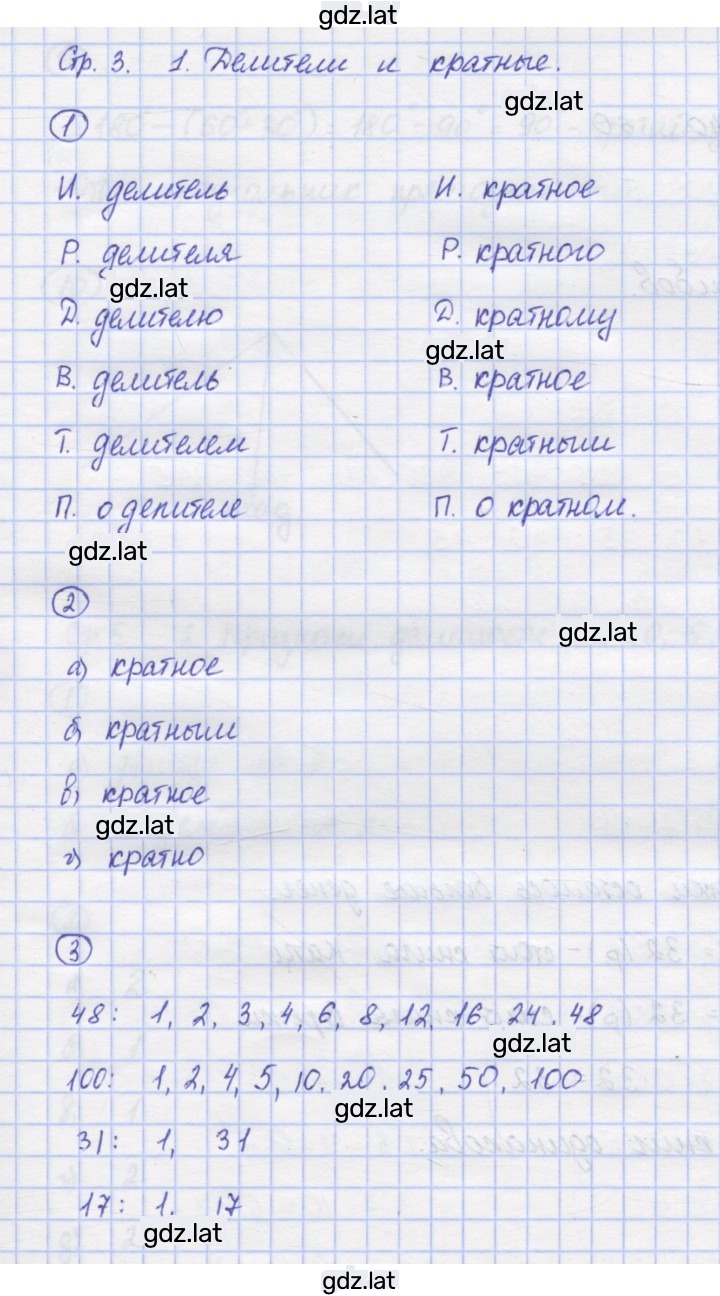 gdz.lat
Стр. 3. 1. Делители и кратные.
gdz.lat
1
И. делитель И. кратное
Р. делителя Р. кратного
gdz.lat
Д. делителю Д. кратному
gdz.lat
В. делитель В. кратное
Т. делителем Т. кратным
П. о делителе П. о кратном.
gdz.lat
2
gdz.lat
а) кратное
б) кратным
в) кратное
gdz.lat
г) кратно
3
48: 1, 2, 3, 4, 6, 8, 12, 16. 24. 48
gdz.lat
100: 1, 2, 4, 5, 10. 20. 25, 50, 100
gdz.lat
31: 1, 31
17: 1. 17
gdz.lat
gdz.lat